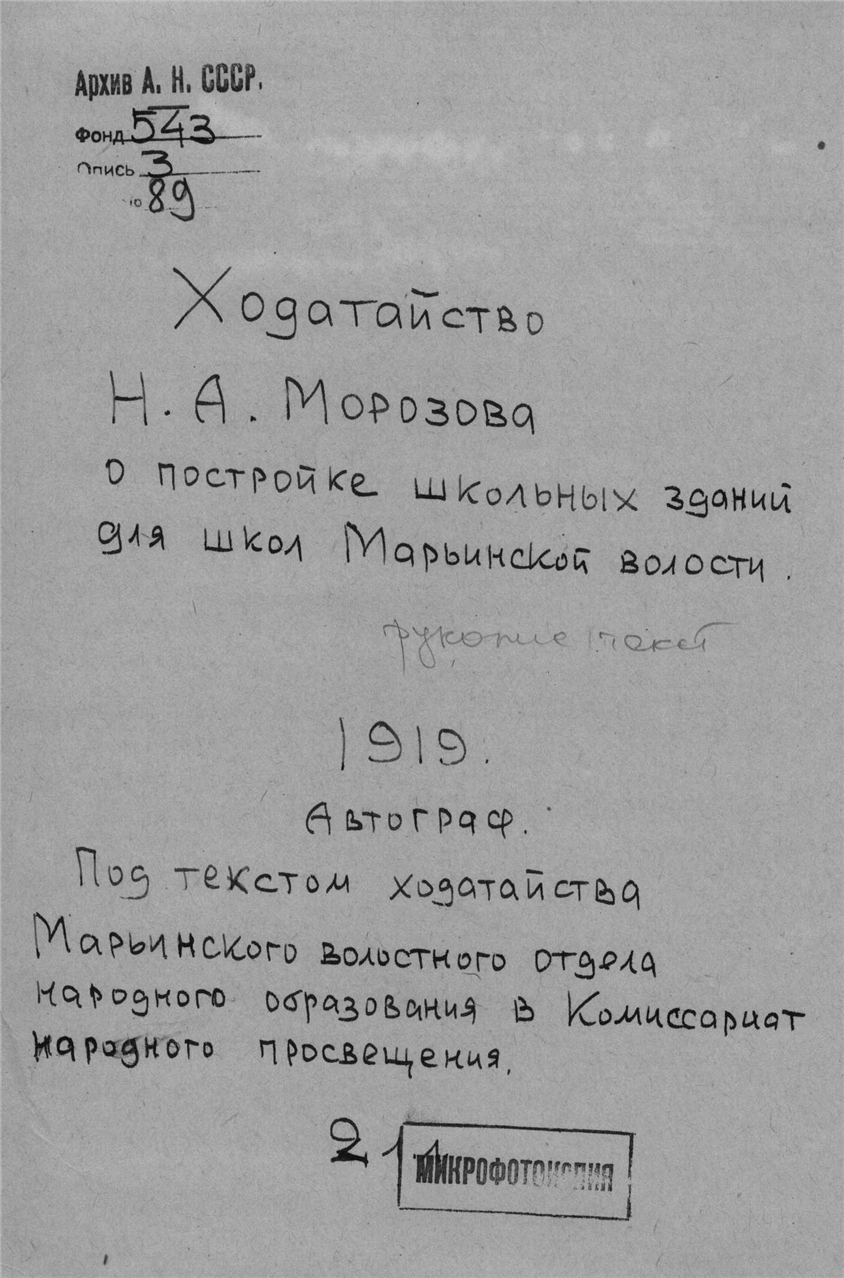 Архив А. Н. СССР.
Фонд 543
Опись 3
№ 89
Ходатайство
Н. А. Морозова
о постройке школьных зданий
для школ Марьинской волости.
1919.
Автограф.
Под текстом ходатайства
Марьинского волостного отдела
народного образования в Комиссариат
народного просвещения.
2
МИКРОФОТОКОПИЯ